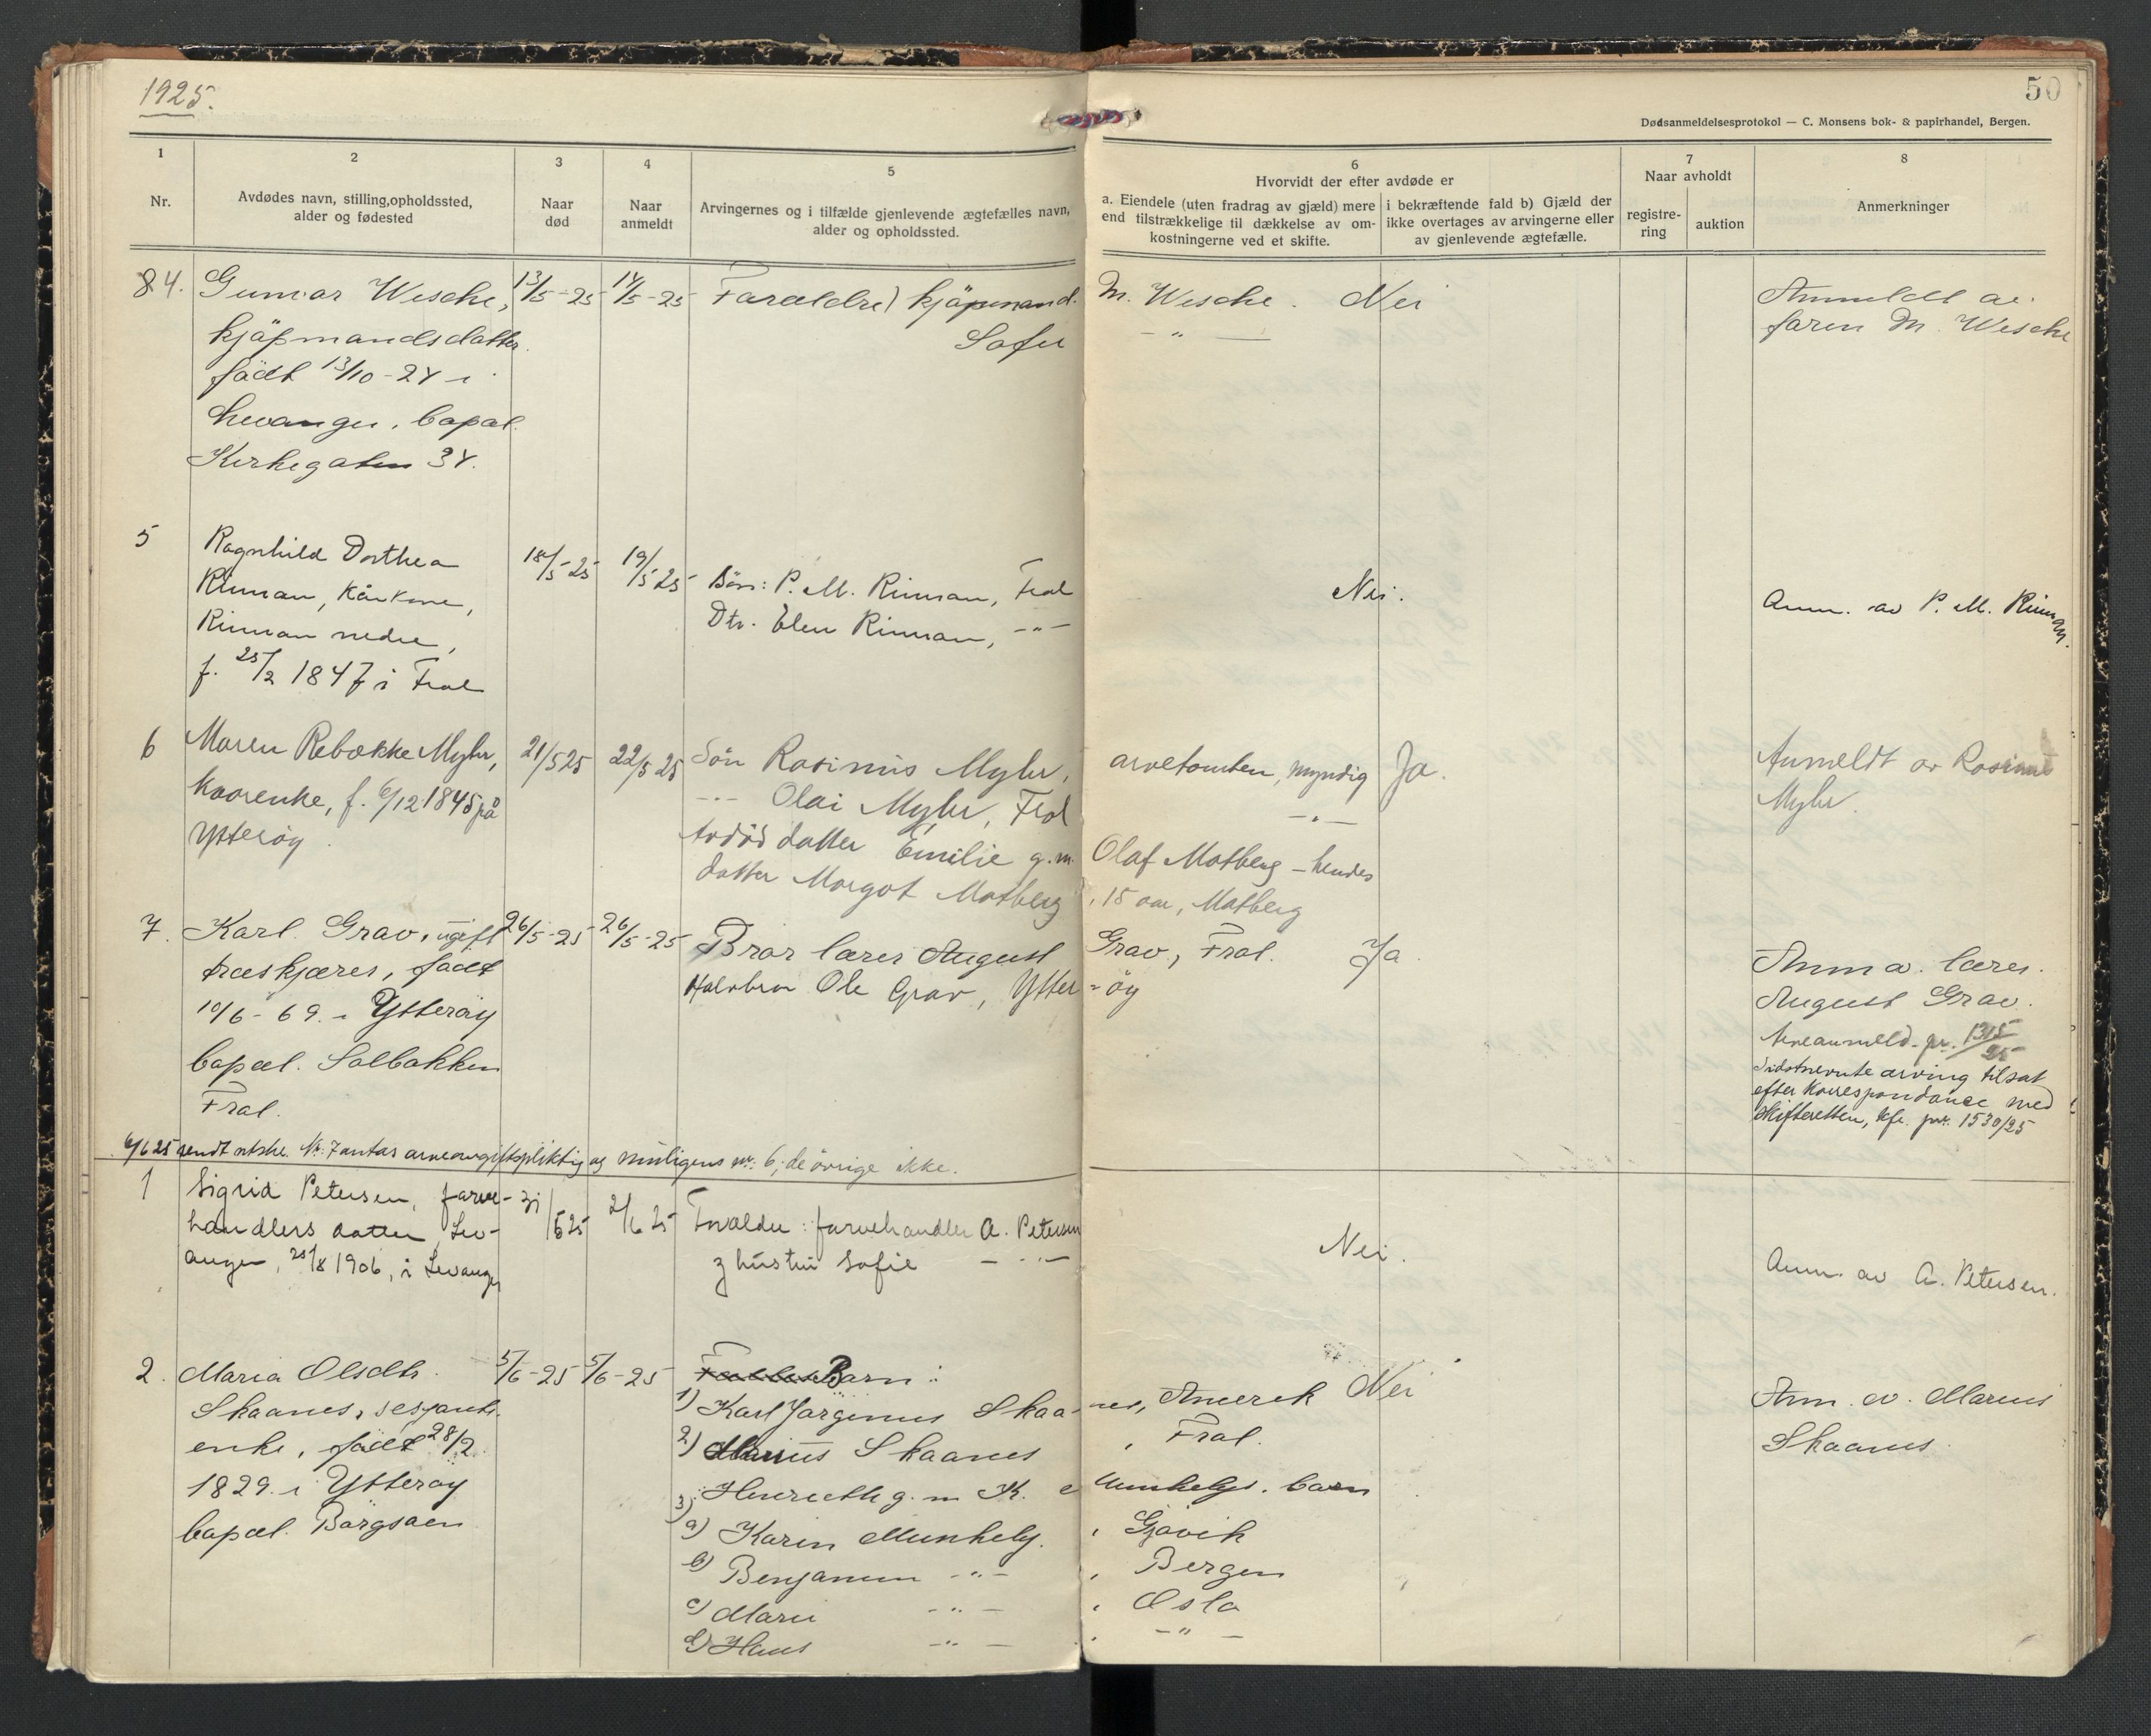 1925.
50
Dødsanmeldelsesprotokol — C. Monsens bok- & papirhandel, Bergen.
1
Nr.
2
Avdødes navn, stilling, opholdssted,
alder og fødested
3
Naar
død
4
Naar
anmeldt
5
Arvingernes og i tilfælde gjenlevende ægtefælles navn,
alder og opholdssted.
6
Hvorvidt der efter avdøde er
a. Eiendele (uten fradrag av gjæld) mere
end tilstrækkelige til dækkelse av om-
kostningerne ved et skifte.
i bekræftende fald b) Gjæld der
ikke overtages av arvingerne eller
av gjenlevende ægtefælle.
7
Naar avholdt
registre-
ring
auktion
8
Anmerkninger
84. Wesche, 13/5-25 14/5-25 Forældre) kjøpmand M. Wesche. Nei
kjøpmandsdatter. Sofie — " —
født 13/10-24 i
Levanger, bopæl
Kirkegaten 34.
Anmeldt av
faren M. Wesche
5 Ragnhild Dorthea 18/5 25 19/5 25
Rinnan, Kårkone, Børn: P. M. Rinnan, Frol Nei.
Rinnan nedre, Dtr. Elen Rinnan, -"-
f. 25/2 1847 i Frol
Anm. av P. M. Rinnan.
6 Maren Rebekke Myhr, 21/5 25 22/5 25 Søn Rasinus Myhr, arvetomten, myndig Ja.
Kaarenke, f. 6/12 1845 på -"- Olai Myhr, Frol -"-
Ytterøy. Avdød datter Emilie g.m. Olaf Matberg - hendes
datter Margot Matberg, 15 aar, Matberg
Anmeldt av Rasinus
Myhr.
7. Karl Grav, ugift 26/5-25 26/5-25 Bror lærer August Grav, Frol. Ja.
træskjærer, født Halvbror Ole Grav, Ytter-øy
10/6-69 i Ytterøy
bopæl. Solbakken
Frol.
Anm av. lærer
August Grav.
Arveanmeld. gr. 1315/25
Sidstnevnte arving tilsat
efter korrespondance med
skifteretten, kfr. jnr. 1530/25
6/6 25 sendt utskr. Nr. 7 antas arveavgiftspliktig og muligens nr. 6; de øvrige ikke.
1 Sigrid Petersen, farve- 31/5 25 2/6 25 Forældre: farvehandler A. Petersen
handlers datter, Lev- & hustru Sofie -"- Nei.
anger, 25/8 1906, i Levanger
Anm. av A. Petersen.
2. Maria Olsdtr. 5/6-25 5/6-25 Barn:
Skaanes, 1) Karl Jørginus Skaanes, Amerik Nei
enke, født 28/2 2) Marius Skaanes, Frol.
1829 i Ytterøy 3) g. m K. barn
bopæl. a) Karin Munkely, Gjøvik
b) Benjamin -"-, Bergen
c) Marie -"-, Oslo
d) Hans -"-, -"-
Anm. av. Marius
Skaanes.